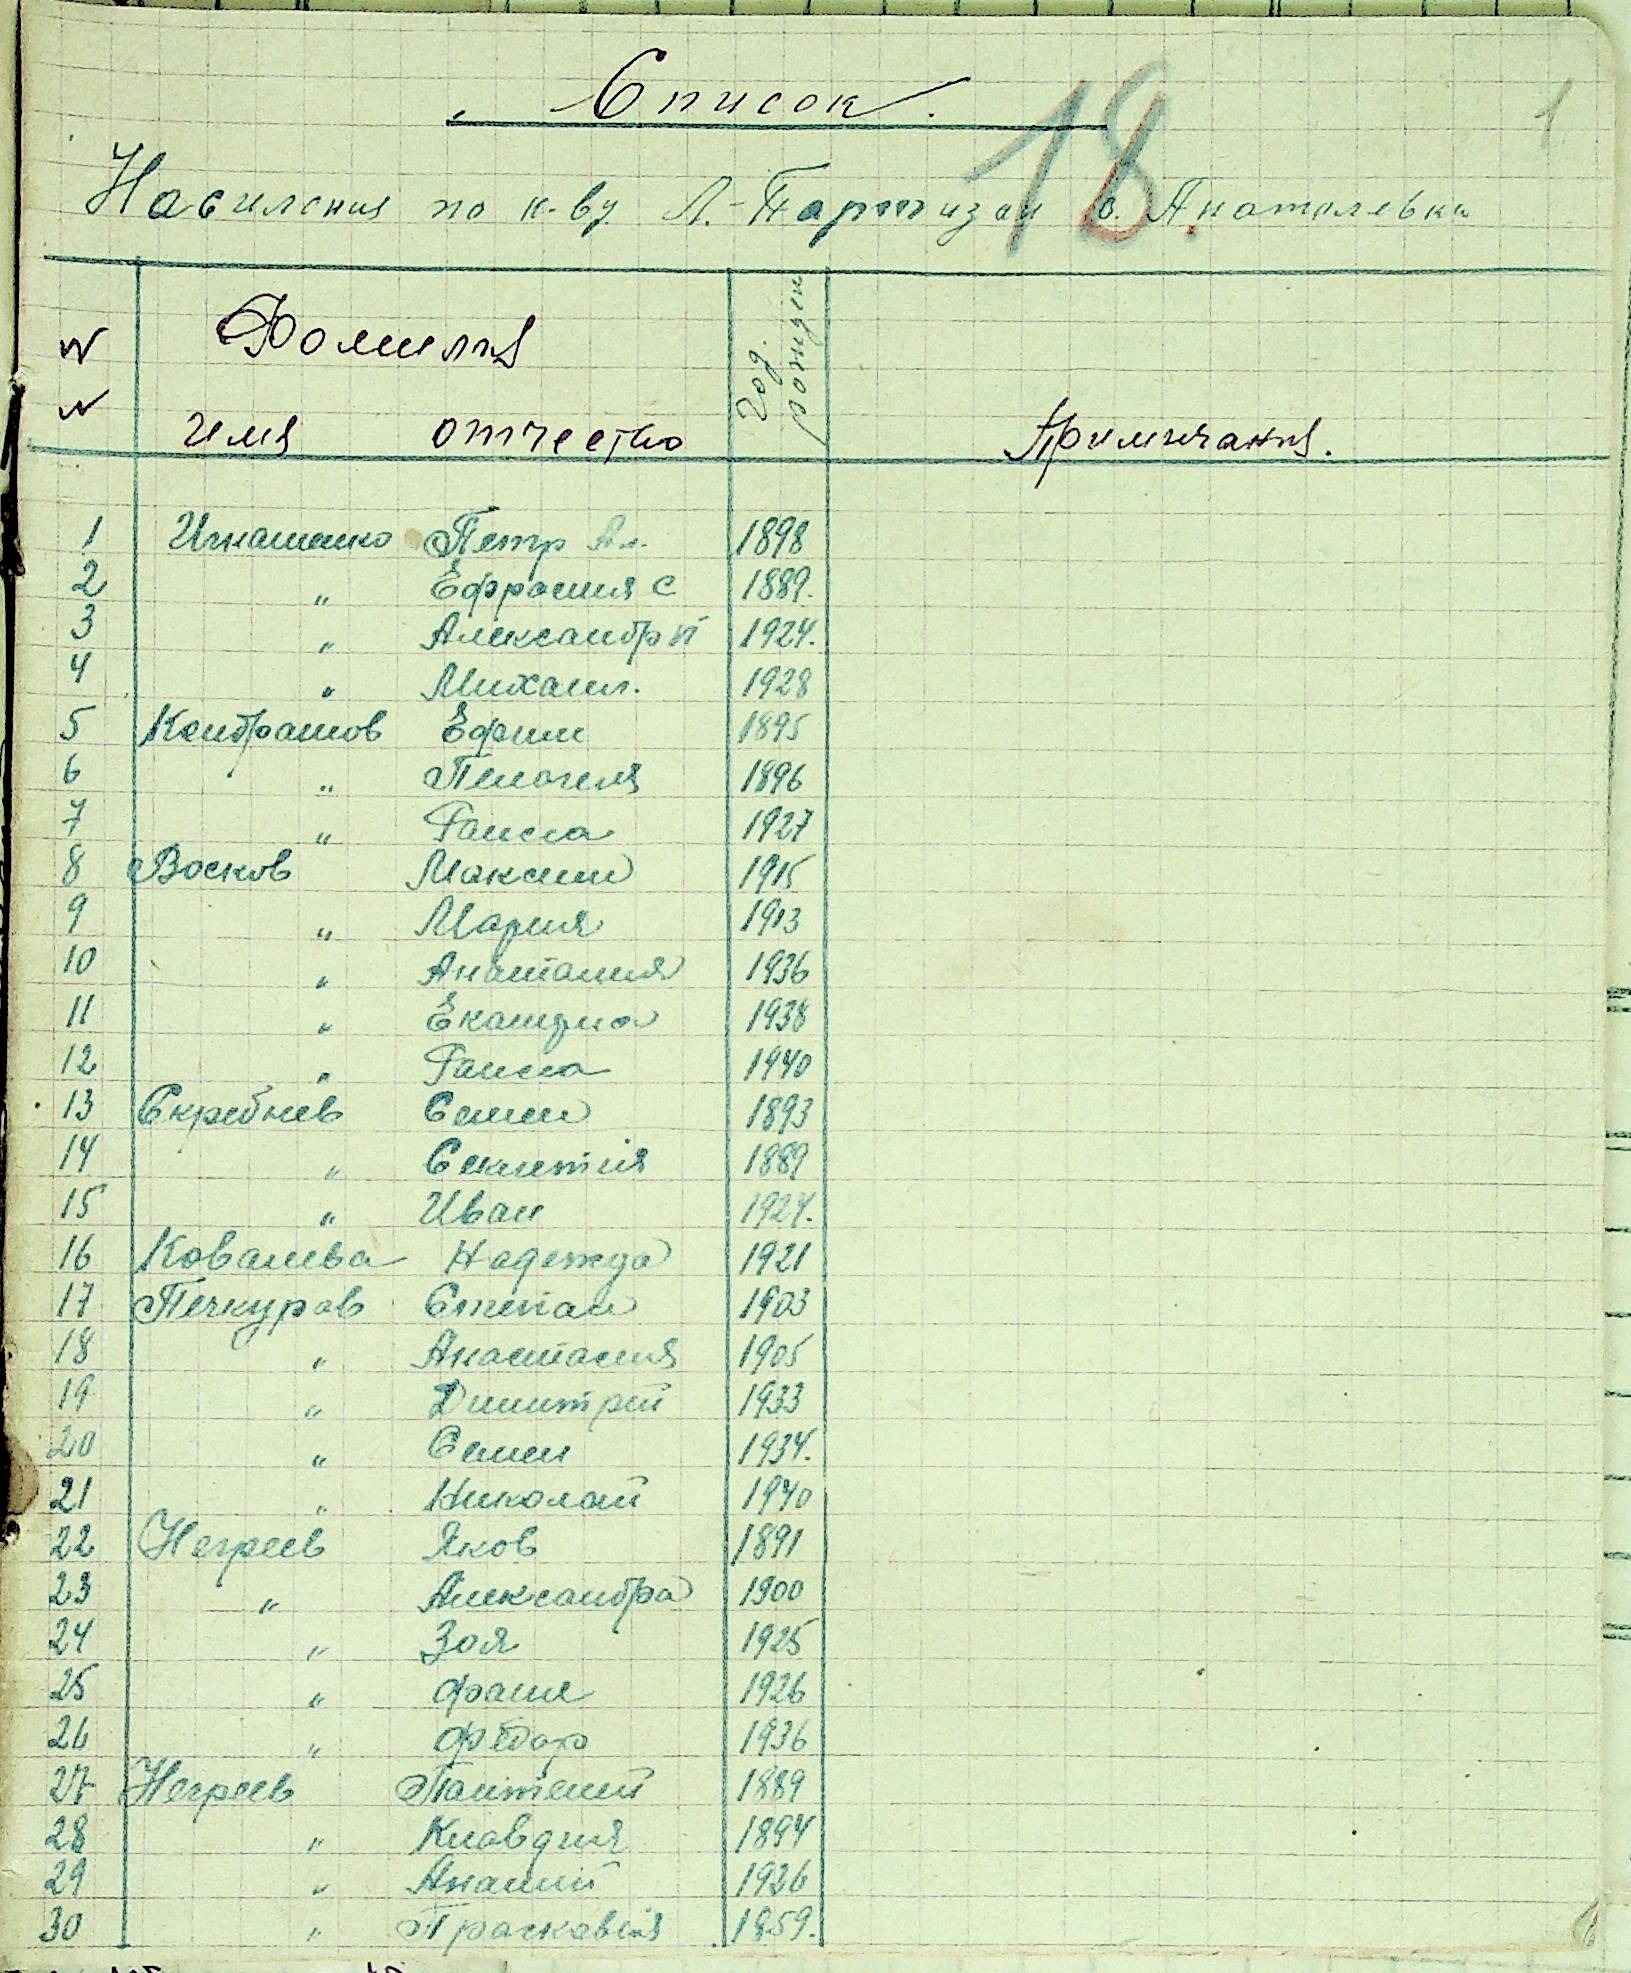 Список.
18
1
Насиления по к-ву Л.-Партизан с. Анатолевки
N
N
Фомилия
имя отчество
Год. рожден
Примичания.
1 Игнашенко Петр Ал. 1898
2 " Ефросиия С 1889.
3 " Александр П 1924.
4 " Михаил. 1928
5 Кондрашов Ефим 1895
6 " Пелогия 1896
7 " Раиса 1927
8 Восков Максим 1915
9 " Мария 1913
10 " 1936
11 " 1938
12 " Раиса 1940
13 Скребнев Семен 1893
14 " 1889
15 " Иван 1924.
16 Ковалева Надежда 1921
17 Печкуров Степан 1903
18 " Анастасия 1905
19 " Димитрий 1933
20 " Семен 1934.
21 " Николай 1940
22 Негреев Яков 1891
23 " Александра 1900
24 " Зоя 1925
25 " Фаня 1926
26 " Фёдор 1936
27 Негреев Пантелий 1889
28 " Клавдия 1894
29 " Ананий 1926
30 " Прасковія 1859.